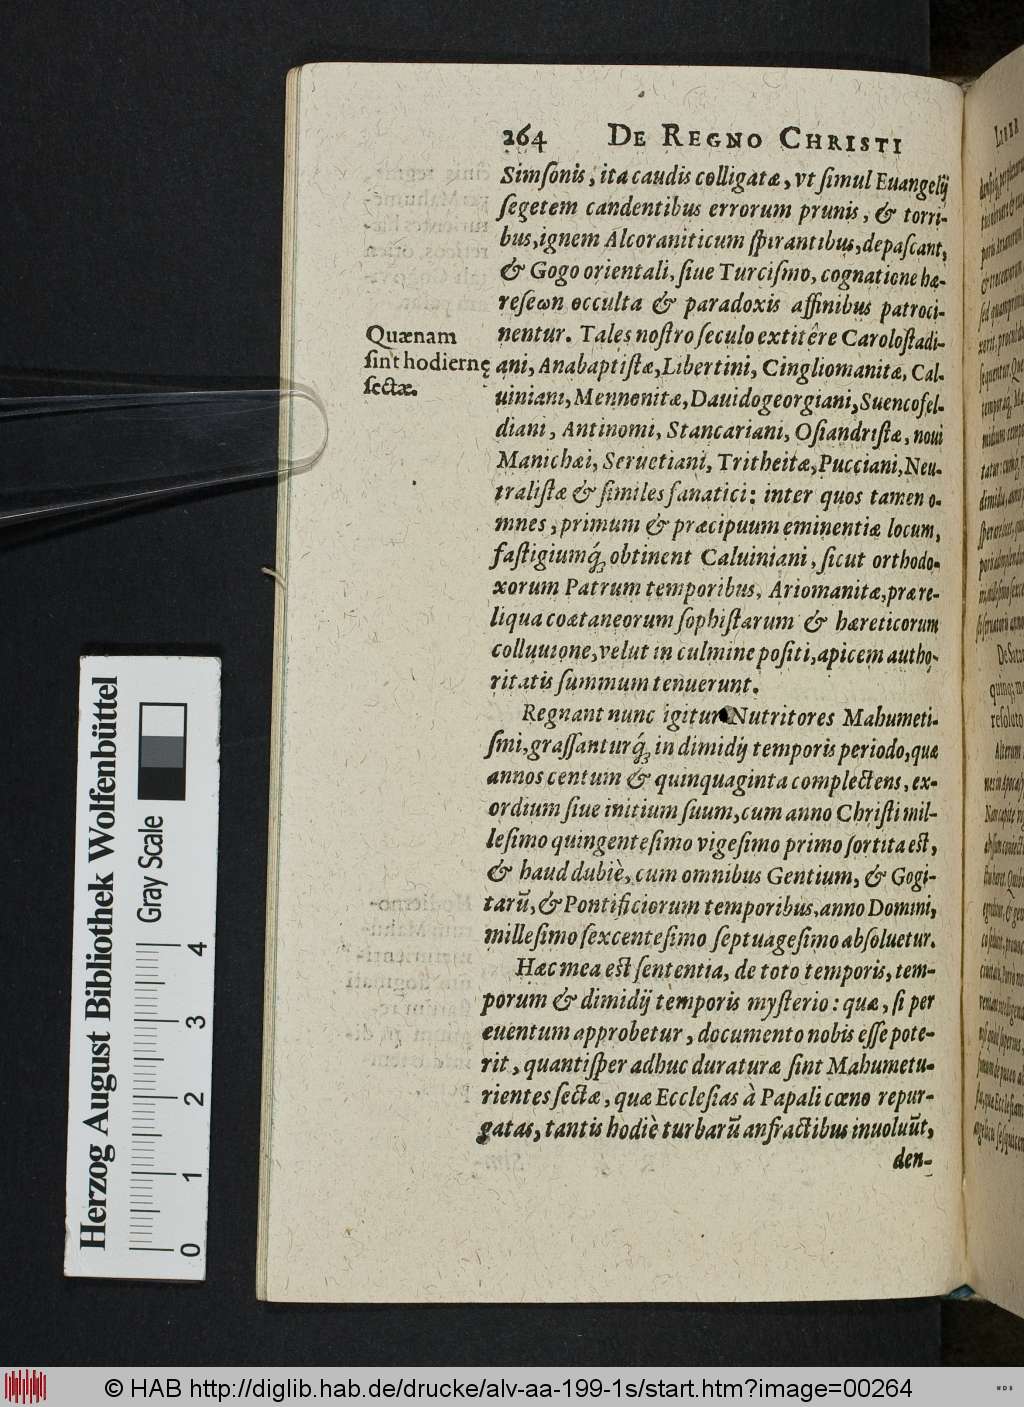 264 DE REGNO CHRISTI
Simſonis, ita caudis colligatæ, vt ſimul Euangelij
ſegetem candentibus errorum prunis, & torri-
bus, ignem Alcoraniticum ſpirantibus, depaſcant,
& Gogo orientali, ſiue Turciſmo, cognatione hæ-
reſeωn occulta & paradoxis affinibus patroci-
nentur. Tales noſtro ſeculo extitêre Caroloſtadi-
Quænam
ſint hodiernę
ſectæ.
ani, Anabaptiſtæ, Libertini, Cingliomanitæ, Cal-
uiniani, Mennonitæ, Dauidogeorgiani, Suencofel-
diani, Antinomi, Stancariani, Oſiandriſtæ, noui
Manichæi, Seruetiani, Tritheitæ, Pucciani, Neu-
traliſtæ & ſimiles fanatici: inter quos tamen o-
mnes, primum & præcipuum eminentiæ locum,
faſtigiumq́ꝫ obtinent Caluiniani, ſicut orthodo-
xorum Patrum temporibus, Ariomanitæ, præ re-
liqua coætaneorum ſophiſtarum & hæreticorum
colluuione, velut in culmine poſiti, apicem autho-
ritatis ſummum tenuerunt.
Regnant nunc igitur Nutritores Mahumetiſ-
mi, graſſanturq́ꝫ in dimidij temporis periodo, quæ
annos centum & quinquaginta complectens, ex-
ordium ſiue initium ſuum, cum anno Chriſti mil-
leſimo quingenteſimo vigeſimo primo ſortita eſt,
& haud dubiè, cum omnibus Gentium, & Gogi-
tarū, & Pontificiorum temporibus, anno Domini,
milleſimo ſexcenteſimo ſeptuageſimo abſoluetur.
Hæc mea eſt ſententia, de toto temporis, tem-
porum & dimidij temporis myſterio: quæ, ſi per
euentum approbetur, documento nobis eſſe pote-
rit, quantiſper adhuc duraturæ ſint Mahumetu-
rientes ſectæ, quæ Eccleſias à Papali cœno repur-
gatas, tantis hodiè turbarū anfractibus inuoluūt,
den-
LIBER
Herzog August Bibliothek Wolfenbüttel
Gray Scale
0 1 2 3 4
© HAB http://diglib.hab.de/drucke/alv-aa-199-1s/start.htm?image=00264
WDB